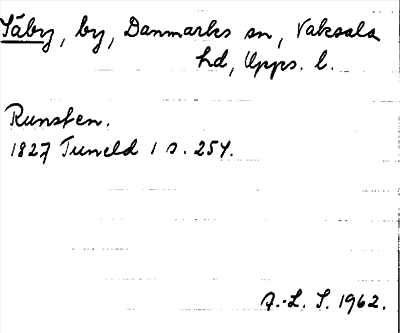 Säby, by, Danmarks sn, Vaksala
hd, Upps. l.
Runsten.
1827 Tuneld 1 s. 254.
A.-L. S. 1962.